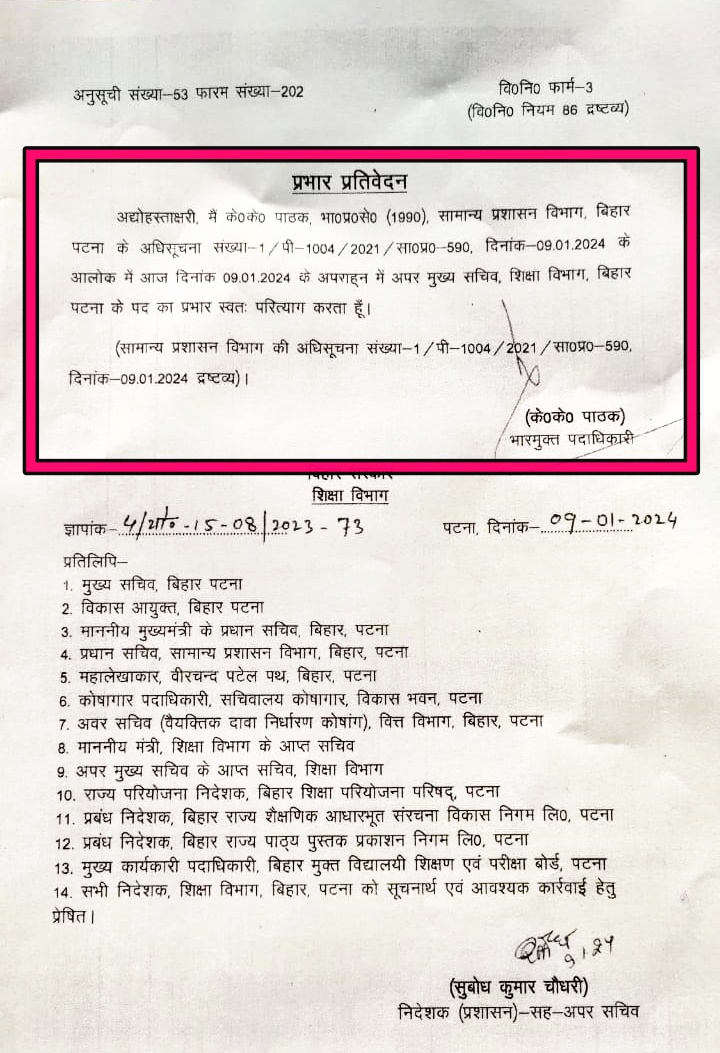 अनुसूची संख्या–53 फारम संख्या–202
वि0नि0 फार्म–3
(वि0नि0 नियम 86 द्रष्टव्य)
प्रभार प्रतिवेदन
अद्योहस्ताक्षरी, मैं के0के0 पाठक, भा0प्र0से0 (1990), सामान्य प्रशासन विभाग, बिहार
पटना के अधिसूचना संख्या–1/पी–1004/2021/सा0प्र0–590, दिनांक–09.01.2024 के
आलोक में आज दिनांक 09.01.2024 के अपराह्न में अपर मुख्य सचिव, शिक्षा विभाग, बिहार
पटना के पद का प्रभार स्वतः परित्याग करता हूँ।
(सामान्य प्रशासन विभाग की अधिसूचना संख्या–1/पी–1004/2021/सा0प्र0–590,
दिनांक–09.01.2024 द्रष्टव्य)।
(के0के0 पाठक)
भारमुक्त पदाधिकारी
बिहार सरकार
शिक्षा विभाग
ज्ञापांक- 4/गो0-15-08/2023-73
पटना, दिनांक- 09-01-2024
प्रतिलिपि–
1. मुख्य सचिव, बिहार पटना
2. विकास आयुक्त, बिहार पटना
3. माननीय मुख्यमंत्री के प्रधान सचिव, बिहार, पटना
4. प्रधान सचिव, सामान्य प्रशासन विभाग, बिहार, पटना
5. महालेखाकार, वीरचन्द पटेल पथ, बिहार, पटना
6. कोषागार पदाधिकारी, सचिवालय कोषागार, विकास भवन, पटना
7. अवर सचिव (वैयक्तिक दावा निर्धारण कोषांग), वित्त विभाग, बिहार, पटना
8. माननीय मंत्री, शिक्षा विभाग के आप्त सचिव
9. अपर मुख्य सचिव के आप्त सचिव, शिक्षा विभाग
10. राज्य परियोजना निदेशक, बिहार शिक्षा परियोजना परिषद्, पटना
11. प्रबंध निदेशक, बिहार राज्य शैक्षणिक आधारभूत संरचना विकास निगम लि0, पटना
12. प्रबंध निदेशक, बिहार राज्य पाठ्य पुस्तक प्रकाशन निगम लि0, पटना
13. मुख्य कार्यकारी पदाधिकारी, बिहार मुक्त विद्यालयी शिक्षण एवं परीक्षा बोर्ड, पटना
14. सभी निदेशक, शिक्षा विभाग, बिहार, पटना को सूचनार्थ एवं आवश्यक कार्रवाई हेतु
प्रेषित।
9.1.24
(सुबोध कुमार चौधरी)
निदेशक (प्रशासन)–सह–अपर सचिव